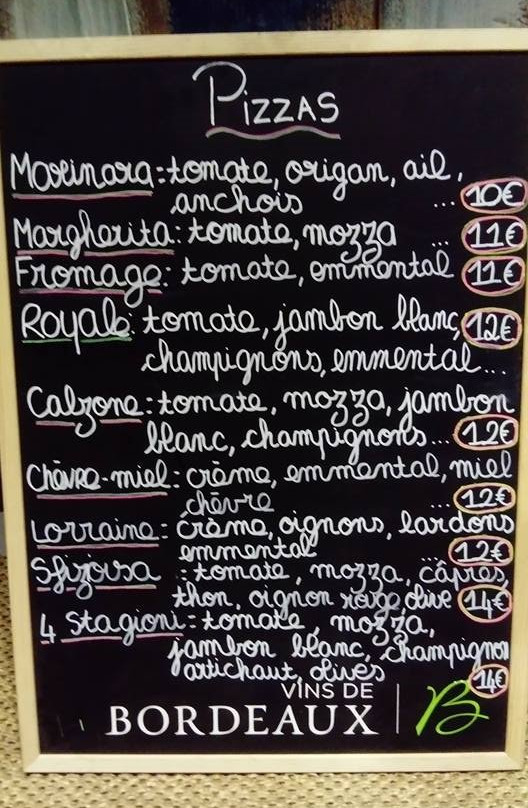 Pizzas
Marinara: tomate, origan, ail,
anchois ... 10€
Margherita: tomate, mozza ... 11€
Fromage: tomate, emmental 11€
Royale: tomate, jambon blanc, 12€
champignons, emmental...
Calzone: tomate, mozza, jambon
blanc, champignons... 12€
Chèvre-miel: crème, emmental, miel
chèvre ... 12€
Lorraine: crème, oignons, lardons
emmental ... 12€
Sfizosa : tomate, mozza, câpres,
thon, oignon rouge, olive 14€
4 Stagioni: tomate, mozza,
jambon blanc, champignon
artichaut, olives 14€
VINS DE
BORDEAUX | B